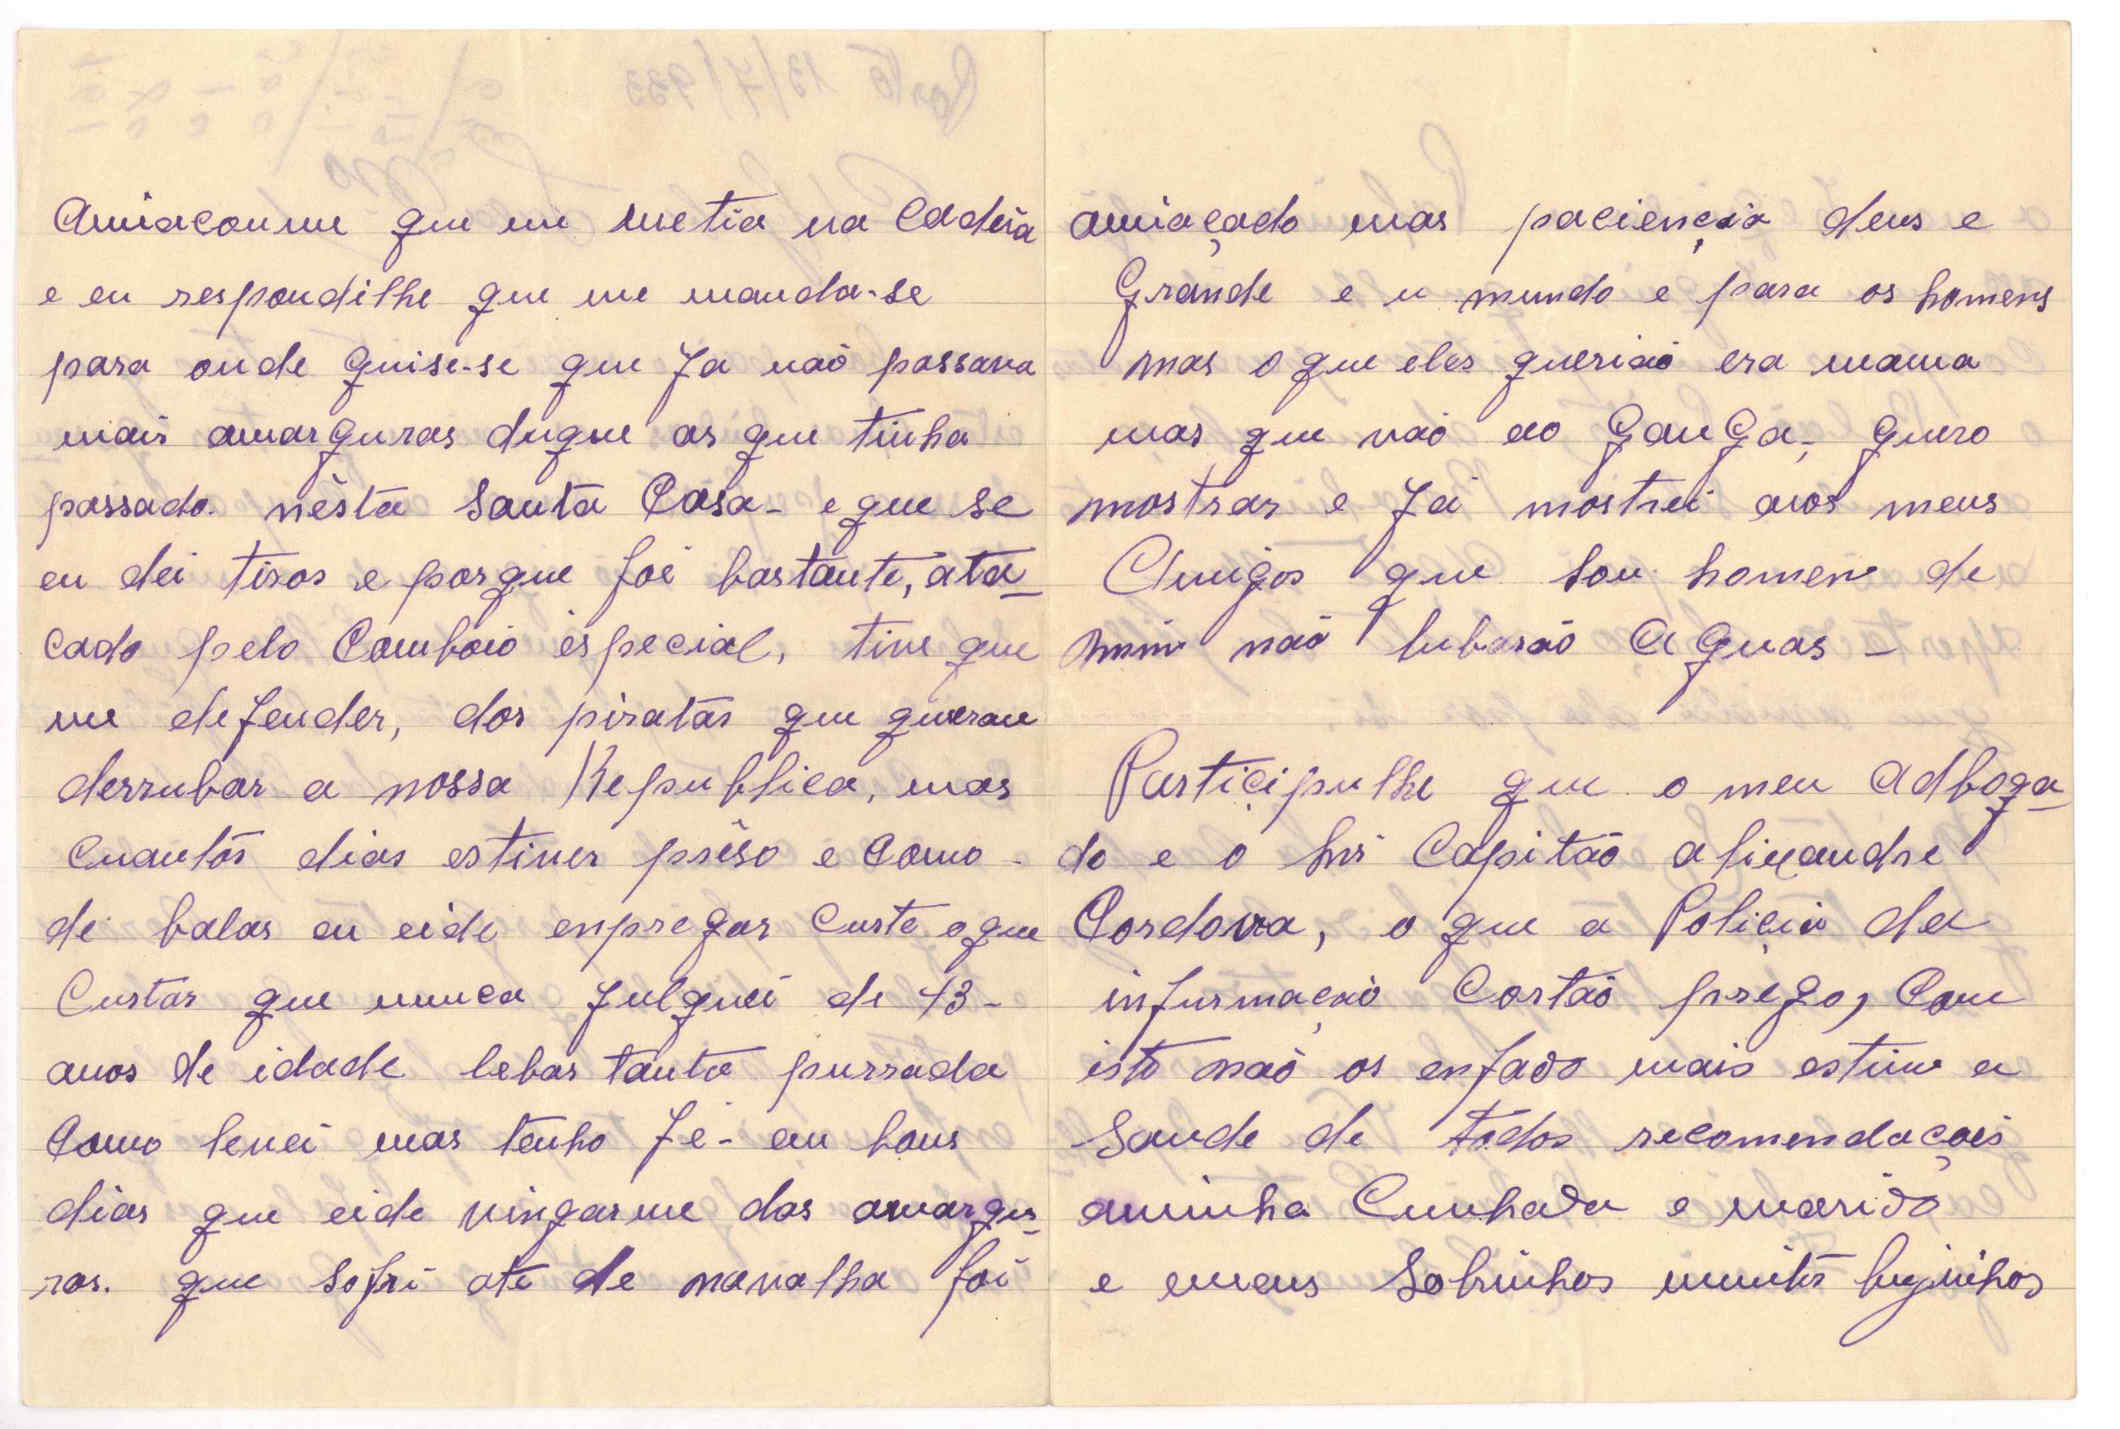 Amiacoume que me metia na Cadeia
e eu respondilhe que me manda-se
para onde quise-se que Ja não passava
mais amarguras duque as que tinha
passado. nèsta Santa Casa - e que se
eu dei tiros e porque foi bastante, ata-
cado pelo Comboio èspecial, tive que
me defender, dos piratas que
derrubar a nossa Republica, mas
Cuantos dias estiver prêso e Como -
de balas eu eide enpregar Custe oque
Custar que nunca Julguei de 43 -
anos de idade lebar tanta purrada
Como levei mas tenho Fé - em bons
dias que eide vingarme das amargu-
ras. que Sofri ate de navalha foi
amiaçado mas paciençia deus e
Grande e u mundo e para os homens
mas o que eles querião era mama
mas que vão ao GanGa, quero
mostrar e Já mostrei aos meus
Amigos que Sou homem de
mim não lubarão Aguas -
Partiçipulhe que o meu Adboga-
do e o Snr Capitão alixandre
Cordova, o que a Poliçia da
infurmação Cortão prego, Com
isto não os enfado mais estime a
Saude de todos recomendações
aminha Cunhada e marido
e emeus Sobrinhos muitos bejinhos
Porto 13/7/933